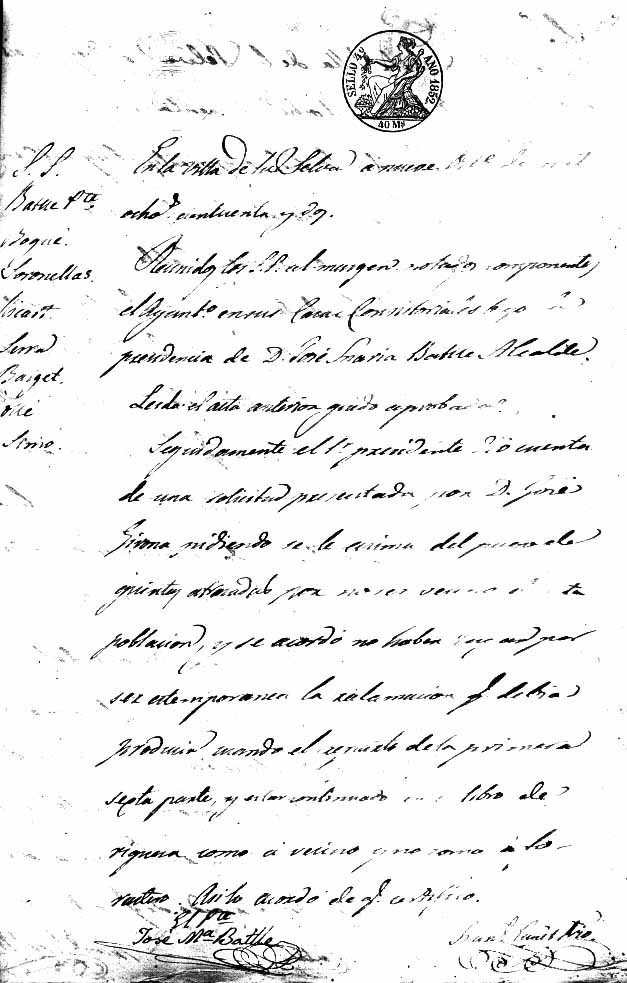 SELLO 4º AÑO 1852
40 Ms
S. S.
Batlle Pte
Boqué.
Loronellas.
Serra
Barget.
En la villa de la Selva a nueve de mil
ochos. cincuenta y dos.
Reunidos los S.S. al margen notados componentes
el Ayuntº en sus Casas Consistoriales bajo la
presidencia de D. José Maria Batlle Alcalde.
Leida el acta anterior quedó aprobada.
Seguidamente el Sr. presidente dió cuenta
de una solicitud presentada por D. José
pidiendo se le exima del pago de
por no ser vecino de esta
poblacion, y se acordó no haber lugar por
ser estemporanea la reclamacion q. debia
producir cuando el reparto de la primera
sexta parte, y estar continuado en el libro de
riqueza como á vecino y no como á fo-
rastero. Asi lo acordó de q. certifico.
El Pte
José Mª Batlle